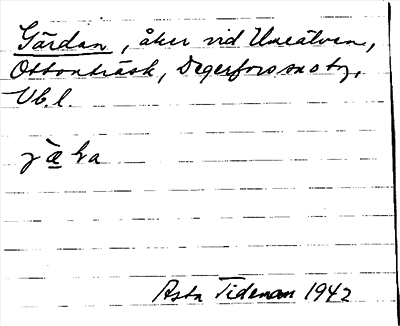 Gärdan, åker vid Umeälven,
Ottonträsk, Degerfors sn o tg,
Vb. l.
Asta Tideman 1942